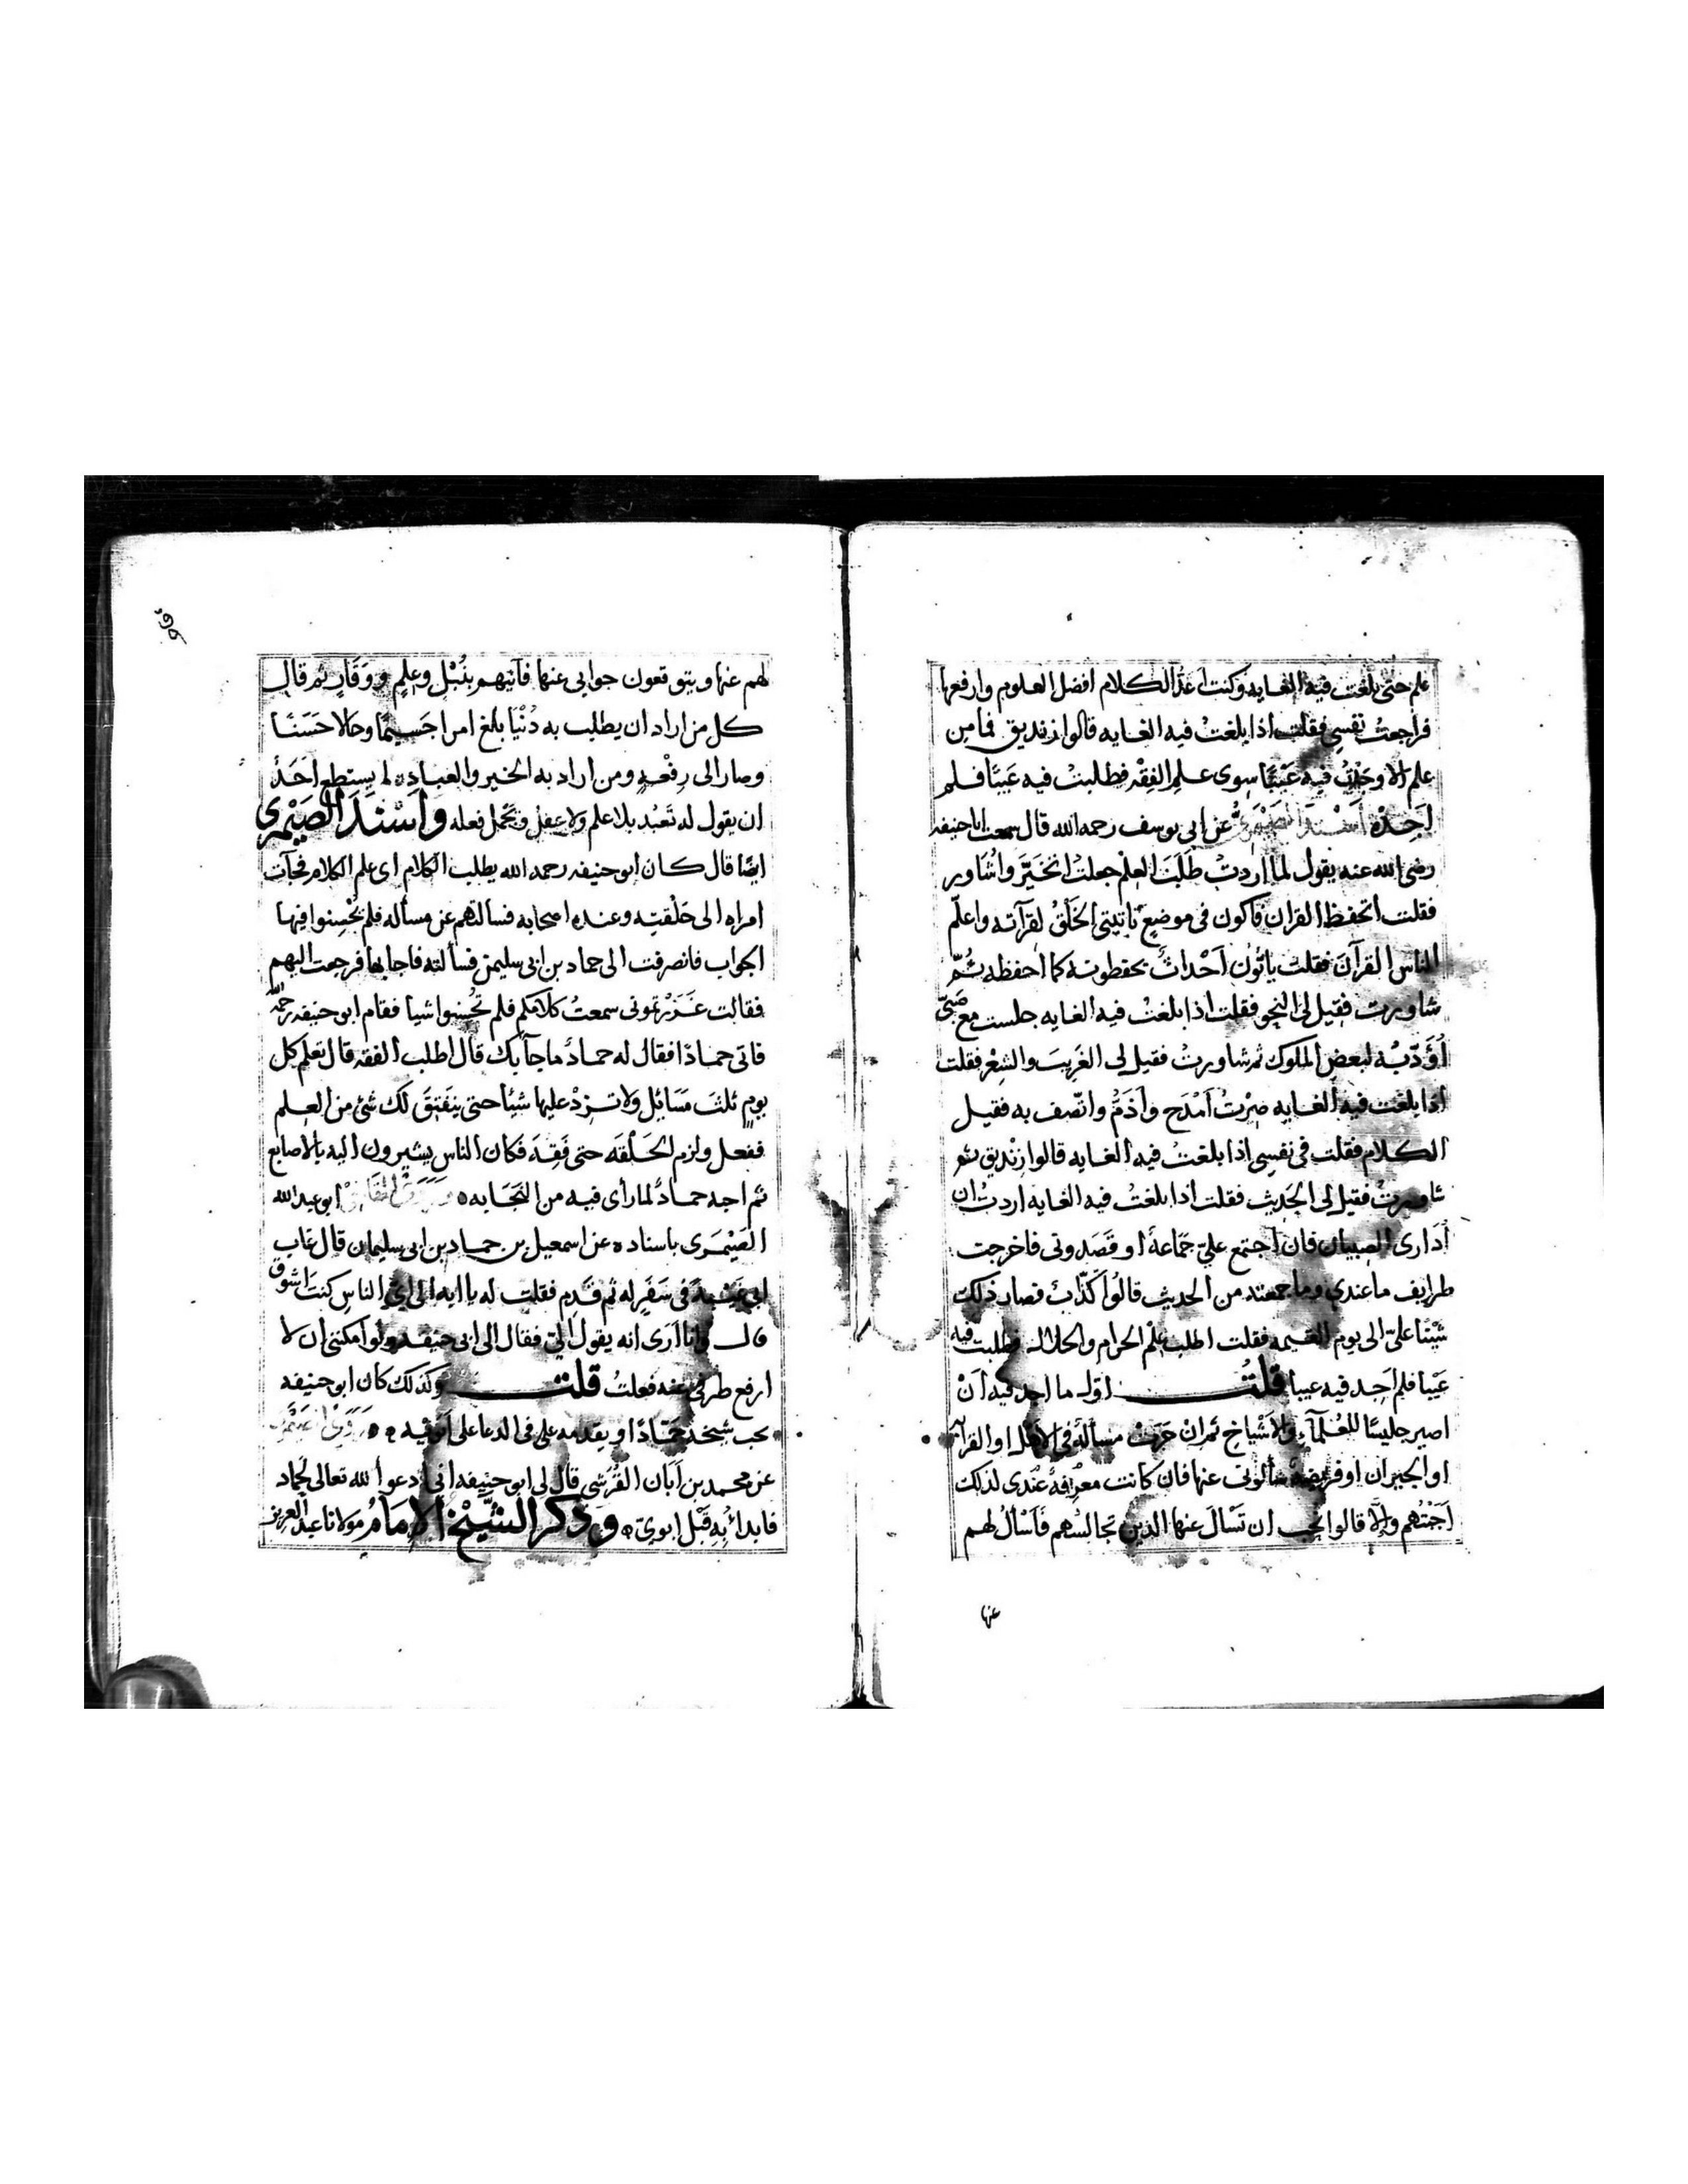 علم حتى بلغت فيه الغايه وكنت اعدّ الكلام افضل العلوم وارفعها
فراجعت نفسى فقلت اذا بلغت فيه الغايه قالوا زنديق فما من
علم الا وجدت فيه عَيْبًا سوى علم الفِقْه فطلبت فيه عَيبًا فلم
اَجِدْه اَسْنَدَ الصَّيْمَرِى عن ابى يوسف رحمه الله قال سمعت اباحنيفه
رضى الله عنه يقول لما اردتُ طَلَبَ العِلْم جعلتُ اتخيّر واُشَاور
فقلت اتحفظ القران فاكون فى موضع تاتينى الخَلقُ لقِرآته واعلّم
الناس القرآنَ فقلت ياتُون اَحْداثٌ يحفظونه كما احفظه ثمّ
شاورت فقيل لى النحو فقلت اذا بلغتُ فيه الغايه جلست مع صَبىّ
اُؤَدّبُه لبعض الملوك ثم شاورت فقيل لى الغَرِيبَ والشِعْر فقلت
اذا بلغت فيه الغايه صِرْتُ اَمْدَح واَذَمُّ واتّصف به فقيل
الكلام فقلت فى نفسى اذا بلغتُ فيه الغايه قالوا زنْديق ثم
شاورتُ فقيل لى الحَديث فقلت اذا بلغتُ فيه الغايه اردتُ ان
اَدَارى الصبيان فان اجتمع علىّ جَمَاعةٌ او قَصَدونى فاخرجت
طرايف ماعندى وما جمعته من الحديث قالُوا كَذّابٌ فصار ذلك
شَيْنًا علىّ الى يوم القيمه فقلت اطلب عِلْم الحرام والحلال فطلبت فيه
عَيْبا فلم اَجِد فيه عيبا قلتُ اوّل ما اجد فيه اَنْ
اصير جليسًا للعُلمآء والاَشْياخِ ثم ان جَرَتْ مسألة فى الاهْل او القرآبه
او الجيران او فريضةٌ سألونى عنها فان كانت معرِفةٌ عنْدى لذلك
اَجَبْتُهم وإلّا قالوا يجب ان تَسْأل عنها الذين تجالسُهم فَاَسْأَلُ لهم
عنها
لهم عنها ويتوقعون جوابى عنها فآتيهم بنُبْلٍ وعِلمٍ ووَقَارٍ ثم قال
كل من اراد ان يطلب به دُنْيَا بلغ امرا جَسيمًا وحالا حَسَنًا
وصار الى رِفْعَةٍ ومن اراد به الخير والعباده لم يستطع اَحَدٌ
ان يقول له تَعَبُد بلا علم ولا عقل فعله واَسْنَدَ الصَيْمرى
ايضًا قال كان ابو حنيفه رحمه الله يطلب الكلام اى علم الكلام فجآت
امراه الى حَلْقتِه وعنده اصحابه فسالتهم عن مسأله فلم يُحْسِنوا فيها
الجواب فانصرفت الى حماد بن ابى سليمن فسألته فاجابها فرجعت اليهم
فقالت غَرَرْتمونى سمعتُ كلامكم فلم تُحْسنوا شيا فقام ابو حنيفه رحمه الله
فاتى حمادًا فقال له حمادٌ ماجآ بك قال اطلب الفقه قال تعلّم كل
يومٍ ثلثَ مَسَائِل ولا تَزِدْ عليها شيئا حتى يَنْفَتِقَ لك شئ من العِلم
ففعل ولزم الحَلْقَه حتى فَقِهَ فكان الناس يشيرون اليه بالاصابع
ثم احبه حمادٌ لما رأى فيه من النَجَابه ابو عبد الله
الصَيْمَرى باسناده عن اسمعيل بن حماد بن ابى سليمان قال غاب
ابى غَيْبةً فى سَفَرٍ له ثم قَدِم فقلت له يا ابه الى اىّ الناس كنتَ اشوق
قال وانا اَرَى انه يقول الىّ فقال الى ابى حنيفه ولو امكننى ان لا
ارفع طرفى عنه فعلتُ قلت وكذلك كان ابو حنيفه
يحب شيخه حمّادًا ويقدمه على فى الدعا على اَبَوَيْه
عن محمد بن اَبَان القُرَشى قال لى ابو حنيفه انى ادعو الله تعالى لحماد
فابدأُ بِهِ قَبْل ابوىّ وذكر الشَّيْخ الاِمَامُ مولانا عبد العزيز